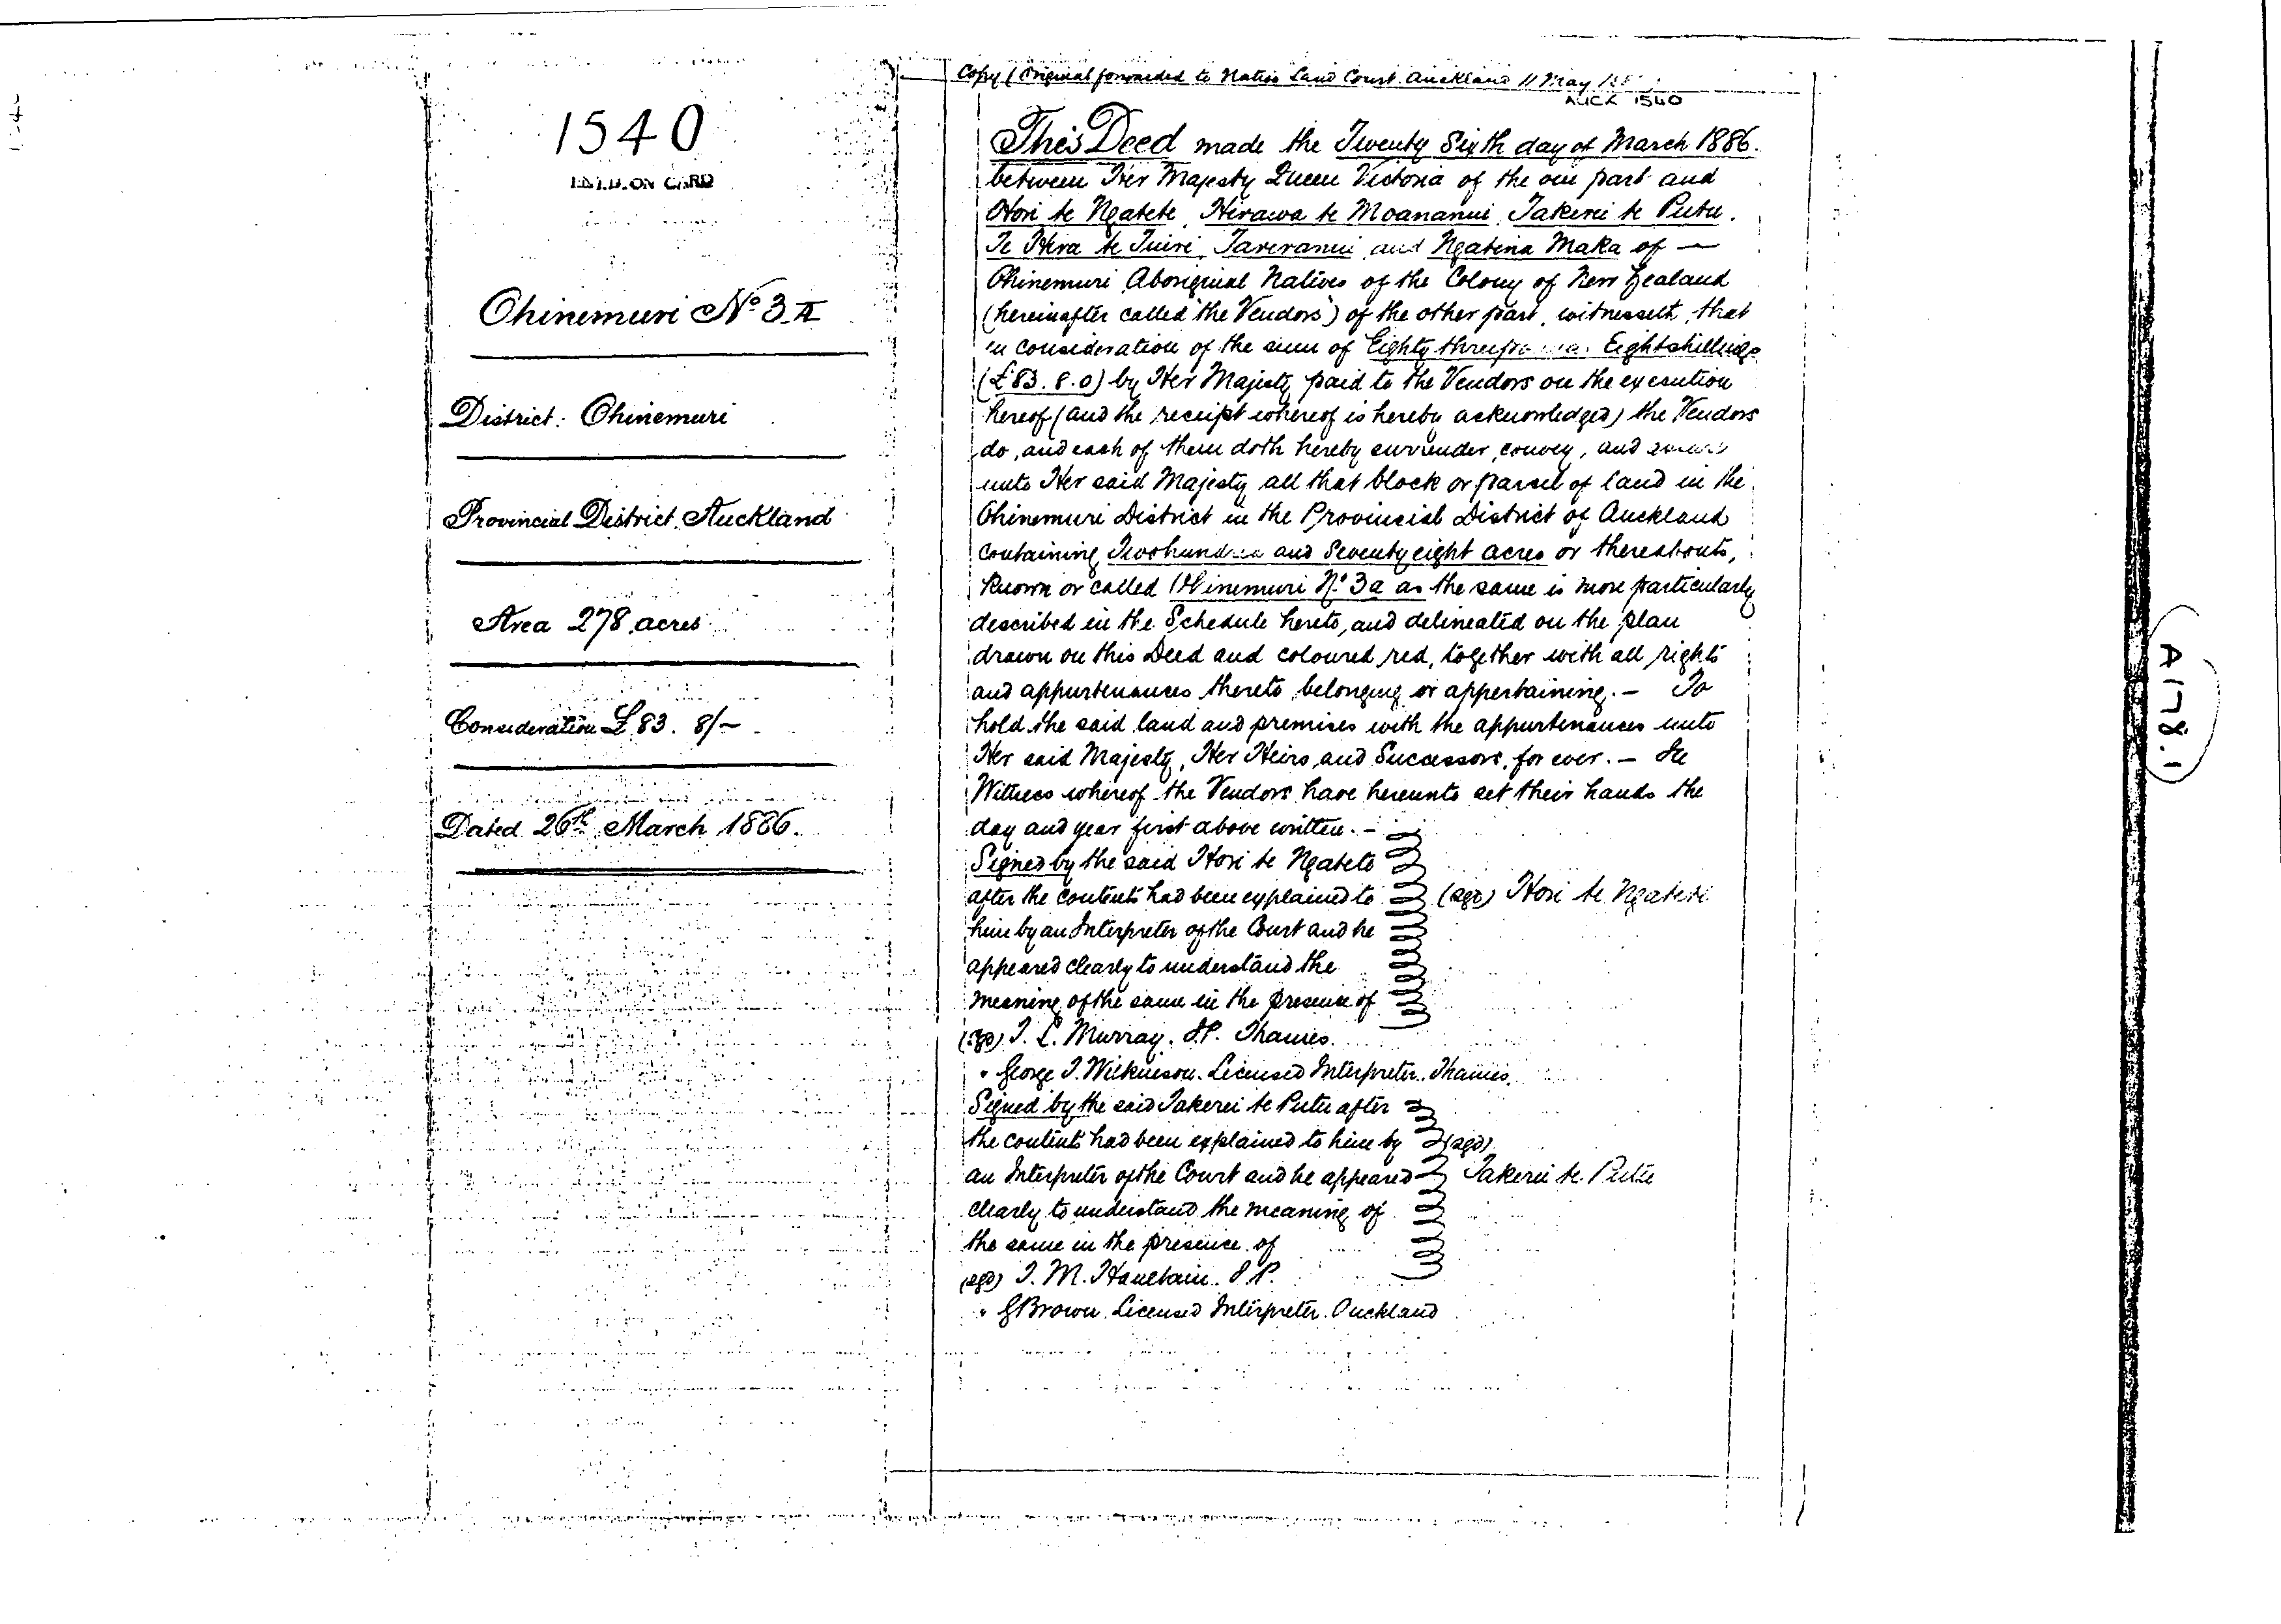 1540
ENTD. ON CARD
Ohinemuri No 3A
District: Ohinemuri
Provincial District, Auckland
Area 278 acres
Consideration £83. 8/-
Dated 26th March 1886.
Copy (Original forwarded to Native Land Court Auckland 11 May
AUCK 1540
This Deed made the Twenty Sixth day of March 1886.
between Her Majesty Queen Victoria of the one part and
Hori te Ngatete, Hirawa te Moananui, Takerei te Putu.
Te Hira te Tuiri, Taveranui and Ngatina Maka of —
Ohinemuri Aboriginal Natives of the Colony of New Zealand
(hereinafter called "the Vendors") of the other part, witnesseth, that
in consideration of the sum of Eighty three Eight shillings
(£83. 8. 0) by Her Majesty paid to the Vendors on the execution
hereof (and the receipt whereof is hereby acknowledged) the Vendors
do, and each of them doth hereby surrender, convey, and
unto Her said Majesty all that block or parcel of land in the
Ohinemuri District in the Provincial District of Auckland
containing Two hundred and Seventy eight acres or thereabouts,
Known or called Ohinemuri No 3a as the same is more particularly
described in the Schedule hereto, and delineated on the plan
drawn on this Deed and coloured red, together with all rights
and appurtenances thereto belonging or appertaining. — To
hold the said land and premises with the appurtenances unto
Her said Majesty, Her Heirs and Successors, for ever. — In
Witness whereof the Vendors have hereunto set their hands the
day and year first above written. —
Signed by the said Hori te Ngatete
after the contents had been explained to (sgd) Hori te Ngatete
him by an Interpreter of the Court and he
appeared clearly to understand the
meaning of the same in the presence of
(sgd) T. L. Murray. J.P. Thames.
" George T. Wilkinson. Licensed Interpreter. Thames.
Signed by the said Takerei te Putu after
the contents had been explained to him by (sgd)
an Interpreter of the Court and he appeared Takerei te Putu
clearly to understand the meaning of
the same in the presence of
(sgd) T. M. Haultain. J.P.
" G Brown. Licensed Interpreter. Auckland
A178.1